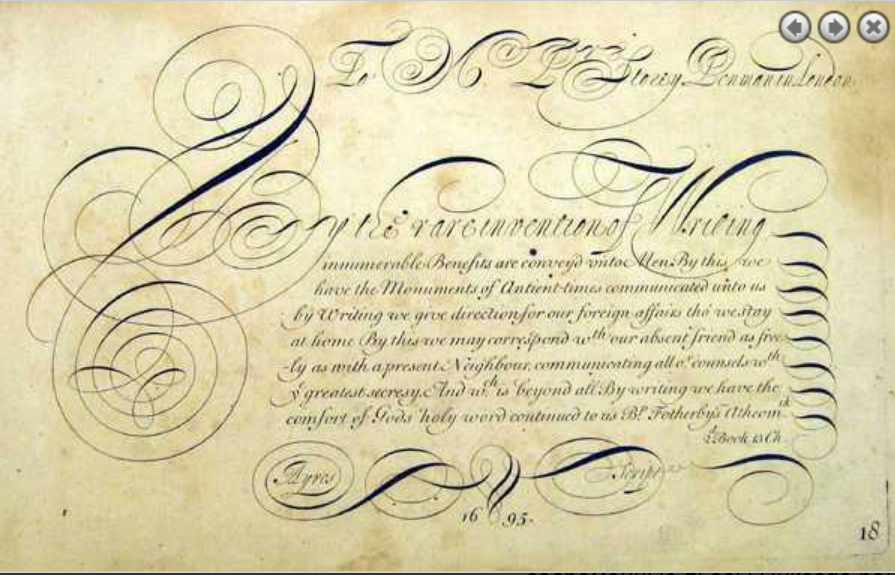 To Mr Perry Stacey Penman in London
By the rare invention of Writing
innumerable Benefits are convey'd unto Men. By this we
have the Monuments of Antient times communicated unto us
by Writing we give direction for our foreign affairs tho' we stay
at home By this we may correspond wth our absent friend as free
-ly as with a present Neighbour, communicating all or counsels wth
ye greatest secresy. And wch is beyond all By writing we have the
comfort of Gods holy word continued to us Bp. Fotherby's Atheomix
2d Book 13 Ch.
Ayres Scrip
1695.
18